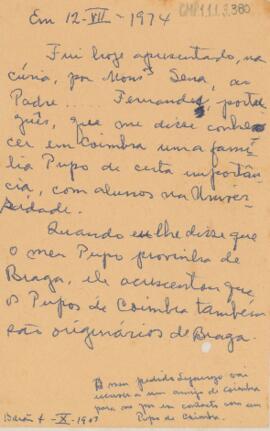 Em 12-VII-1974
CMP.1.1.3.380
Fui hoje apresentado, na
cúria, por Mons. Sena, ao
Padre .... Fernandes, portu-
guês, que me disse conhe-
cer em Coimbra uma famí-
lia Pupo de certa importân-
cia, com alunos na Univer-
sidade.
Quando eu lhe disse que
o meu Pupo provinha de
Braga, ele acrescentou que
os Pupos de Coimbra também
são originários de Braga.
A meu pedido
a um amigo de Coimbra
para me por em contacto com um
Pupo de Coimbra.